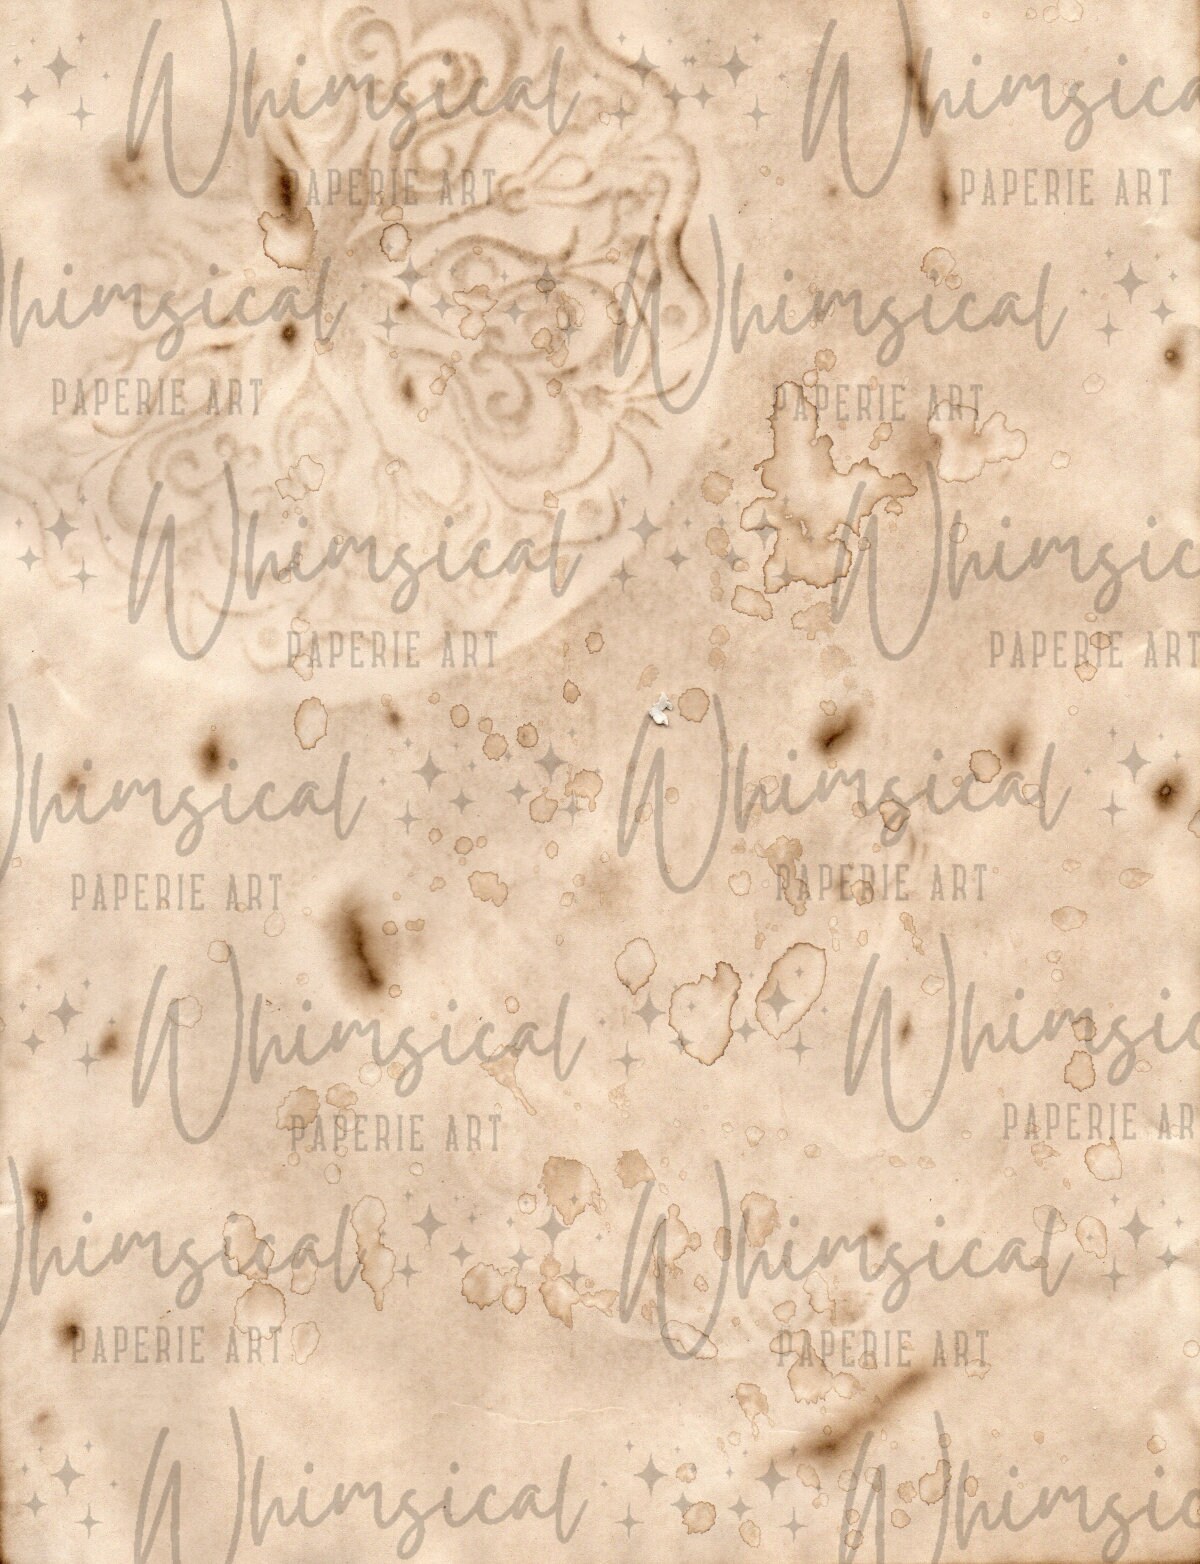 Whimsical Whimsica
PAPERIE ART PAPERIE ART
Whimsical Whimsical
PAPERIE ART PAPERIE ART
Whimsical Whimsical
PAPERIE ART PAPERIE ART
Whimsical Whimsical
PAPERIE ART PAPERIE ART
Whimsical Whimsical
PAPERIE ART PAPERIE AR
Whimsical Whimsical
PAPERIE ART PAPERIE ART
Whimsical Whimsical